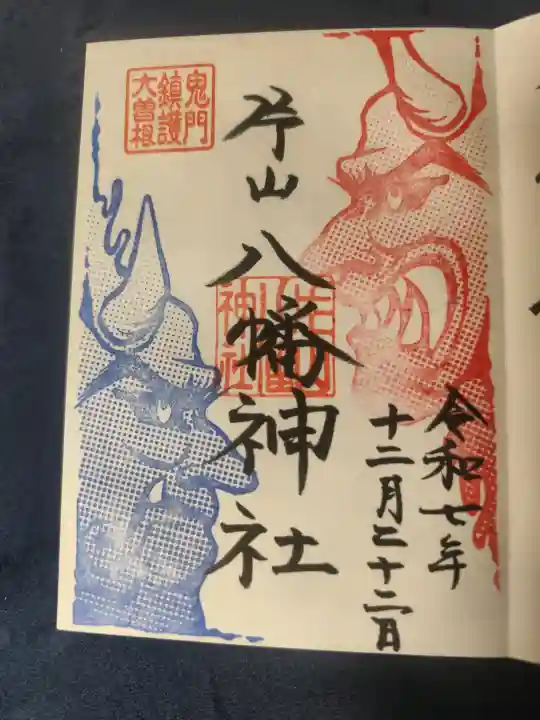 鬼門
鎮護
大曽根
片山八幡神社
令和七年
十二月二十二日